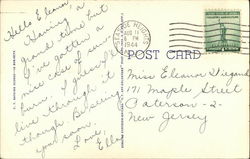 Hello Eleanor,
Having a
grand time but
I've gotten a
nice case of sun-
burn. I guess I'll
live through it
though. Be seeing
you soon.
Love,
Ella
HEIGHTS
AUG 11
PM
1944
POST CARD
Miss Eleanor Wiegand
171 Maple Street
Paterson-2-
New Jersey